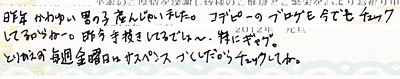 昨年かわゆい男の子産んじゃいました。コデビーのブログを今でもチェック
してるからねー。昨今手抜きしてるでしょ〜。特にギャグ。
とりあえず毎週金曜日はサスペンスづくしだからチェックしてね。
2012年 元旦